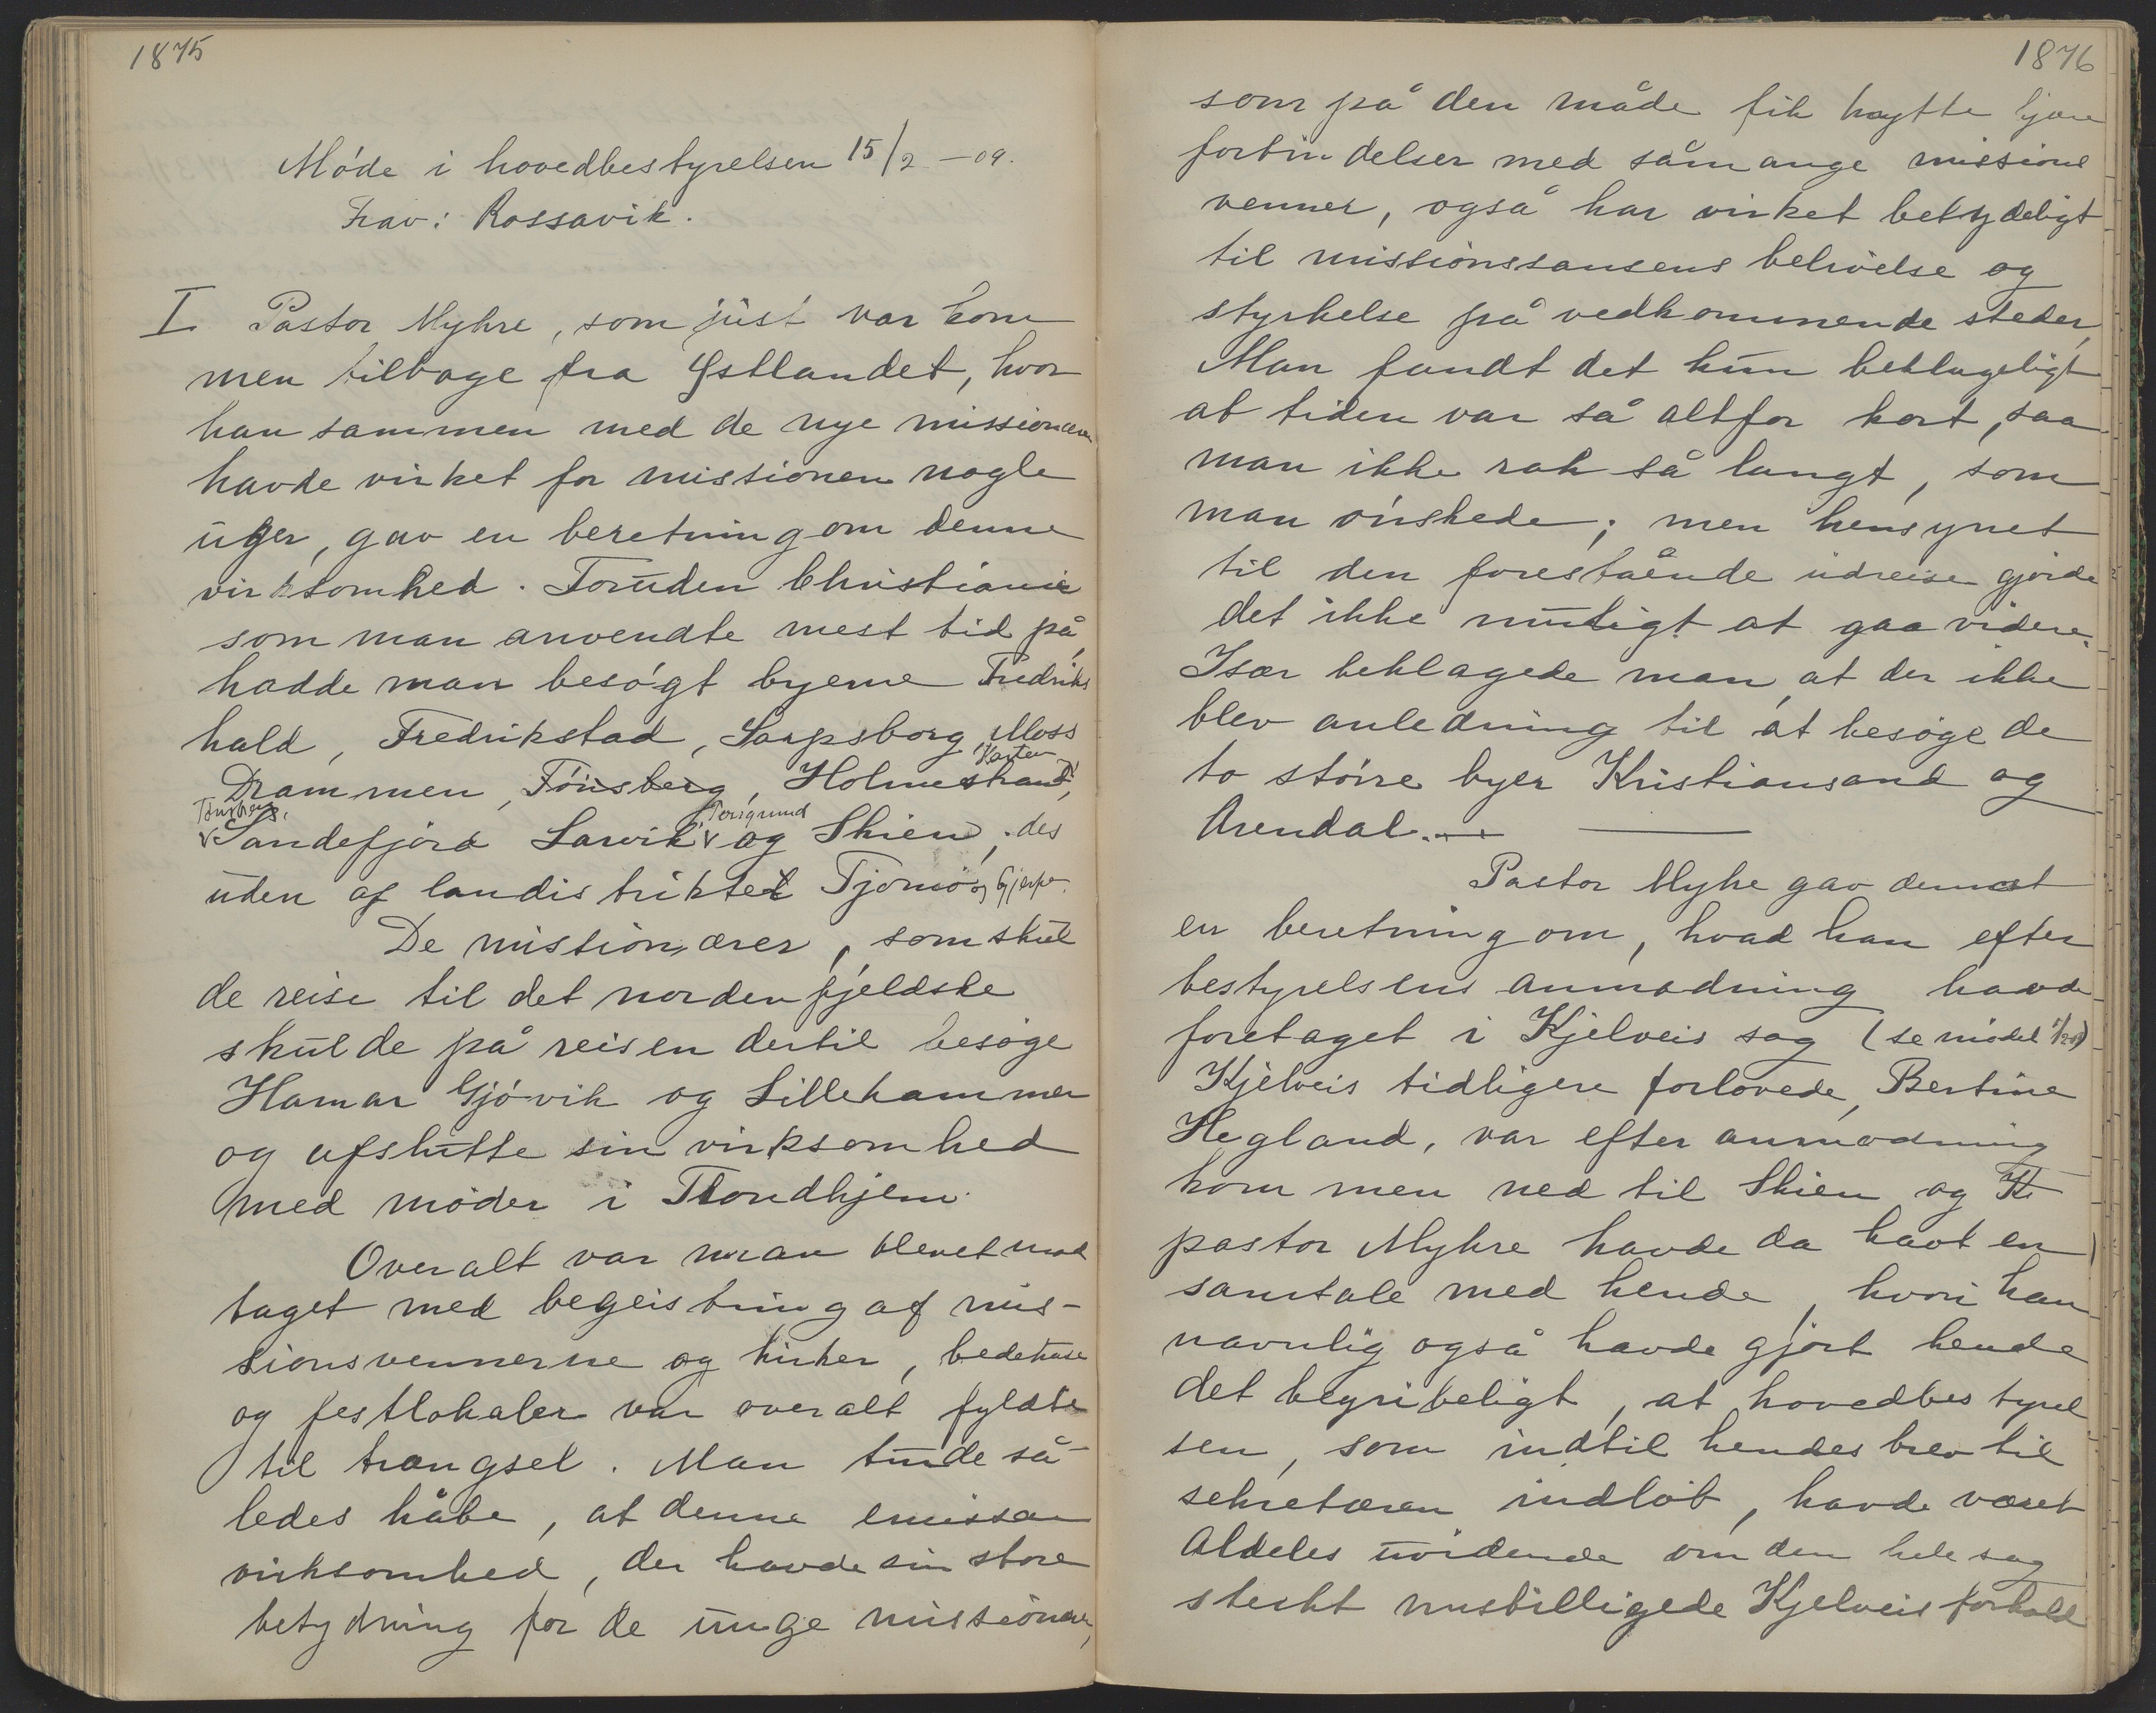 1875
Møde i hovedbestyrelsen 15/2 - 09.
Frav: Rossavik.
I Pastor Myhre, som just var kom
men tilbage fra Østlandet, hvor
han sammen med de nye missionærer
havde virket for missionen nogle
uger, gav en beretning om denne
virksomhed. Foruden Christiania
som man anvendte mest tid på,
hadde man besøgt byerne Fredriks
hald, Fredrikstad, Sarpsborg, Moss
Horten
Drammen, Tønsberg, Holmestrand,
Tønsberg, Porsgrund
Sandefjord Larvik og Skien, des
uden af landistriktet Tjømø og Gjerpe.
De missionærer, som skul
de reise til det nordenfjeldske
skulde på reisen dertil besøge
Hamar Gjøvik og Lillehammer
og afslutte sin virksomhed
med møder i Trondhjem.
Overalt var man blevet mod
taget med begeistring af mis-
sionsvennerne og kirker, bedehuse
og festlokaler var overalt fyldte
til trængsel. Man turde så-
ledes håbe, at denne emissær
virksomhed, der havde sin store
betydning for de unge missionærer,
1876
som på den måde fik knytte
forbindelser med såmange missions
venner, også har virket betydeligt
til missionssansens belivelse og
styrkelse på vedkommende steder,
Man fandt det kun beklageligt
at tiden var så altfor kort, saa
man ikke rak så langt, som
man ønskede; men hensynet
til den forestående udreise gjorde
det ikke muligt at gaa videre.
Især beklagede man, at der ikke
blev anledning til at besøge de
to større byer Kristiansand og
Arendal.
Pastor Myhre gav dernæst
en beretning om, hvad han efter
bestyrelsens anmodning havde
foretaget i Kjelveis sag (se mødet
Kjelveis tidligere forlovede, Bertine
Hegland, var efter anmodning
kommen ned til Skien og
pastor Myhre havde da havt en
samtale med hende, hvori han
navnlig også havde gjort hende
det begribeligt, at hovedbestyrel
sen, som indtil hendes brev til
sekretæren indløb, havde været
aldeles uvidende om den hele sag
sterkt misbilligede Kjelveis forhold